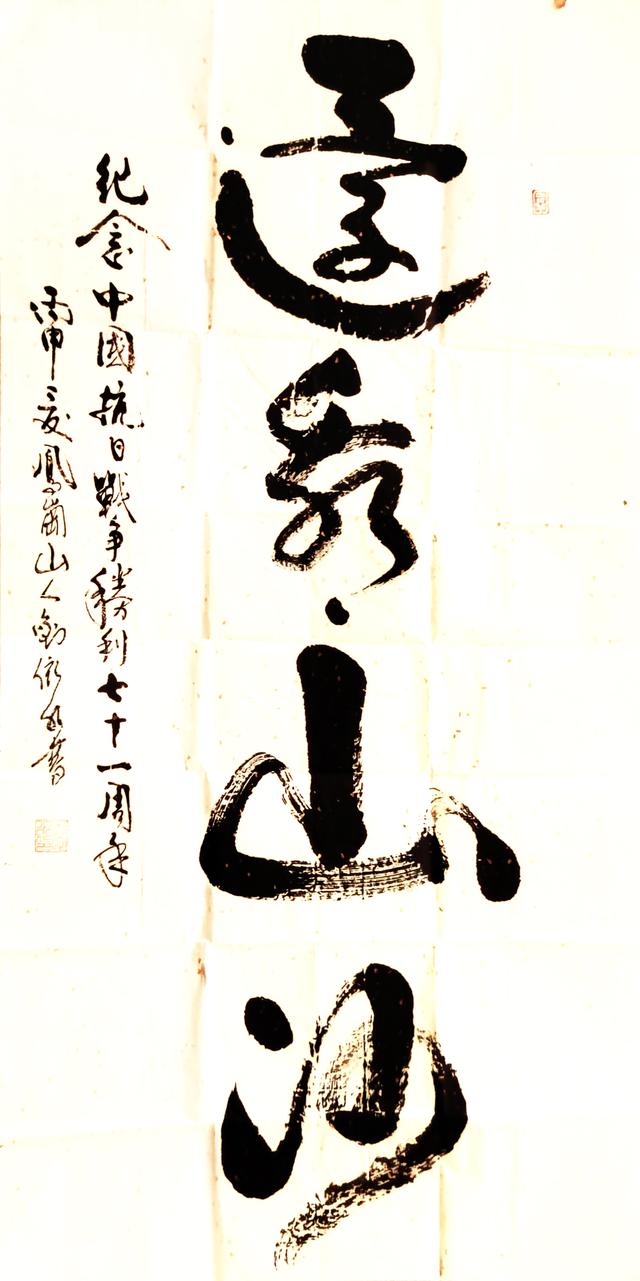 還我山河
紀念中國抗日戰爭勝利七十一周年
丙申之夏鳳崗山人劉書